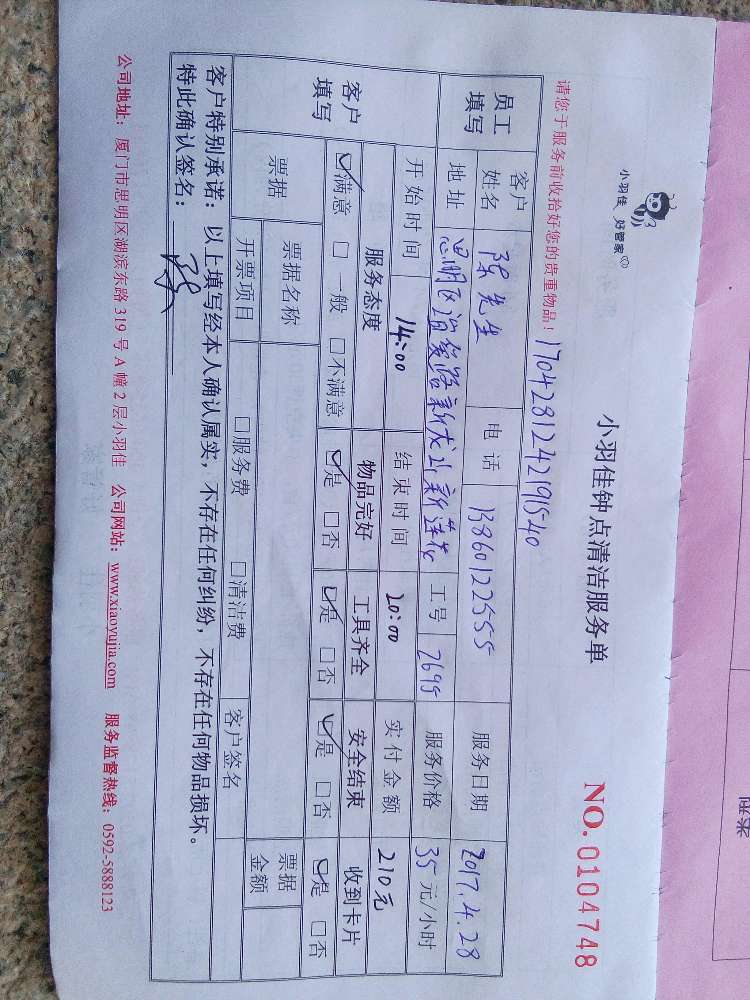 小羽佳 好管家
小羽佳钟点清洁服务单
NO. 0104748
请您于服务前收拾好您的贵重物品！ 1704281242191540
员工填写 客户姓名 陈先生 电话 13860122555 服务日期 2017.4.28
地址 思明区谊爱路新龙山新莲花 工号 2695 服务价格 35元/小时
开始时间 14:00 结束时间 20:00 实付金额 210元
客户填写 服务态度 物品完好 工具齐全 安全结束 收到卡片
☑满意 □一般 □不满意 ☑是 □否 ☑是 □否 ☑是 □否 ☑是 □否
票据 票据名称 票据金额
开票项目 □服务费 □清洁费 客户签名
客户特别承诺：以上填写经本人确认属实，不存在任何纠纷，不存在任何物品损坏。
特此确认签名：陈
公司地址：厦门市思明区湖滨东路 319 号 A 幢 2 层小羽佳 公司网站：www.xiaoyujia.com 服务监督热线：0592-5888123